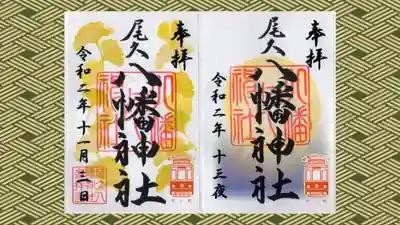 奉拝
尾久八幡神社
令和二年 十一月 三日
奉拝
尾久八幡神社
令和二年 十三夜
八幡神社